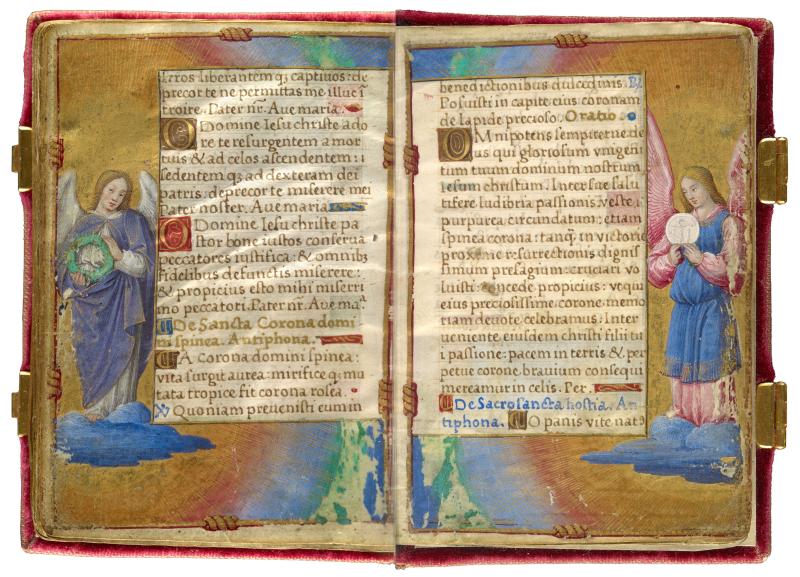 feros liberantem q; captiuos: de
precor te ne permittas me illuc ī
troire. Pater nr̃. Aue maria.
O Domine Iesu christe ado
re te resurgentem a mor
tuis & ad celos ascendentem:
sedentem q; ad dexteram dei
patris: deprecor te miserere mei
Pater noster. Aue maria
O Domine Iesu christe pa
stor bone iustos conserua
peccatores iustifica: & omnibꝫ
fidelibus defunctis miserere:
& propicius esto mihi miserri
mo peccatori. Pater nr̃. Aue maª.
De Sancta Corona domi
ni spinea. Antiphona.
A corona domini spinea:
vita surgit aurea: mirifice q; mu
tata tropice fit corona rosea.
℣ Quoniam prevenisti eum in
benedictionibus dulcedinis. ℟
Posuisti in capite eius coronam
de lapide precioso. Oratio.
OMnipotens sempiterne de
us qui gloriosum vnigeni
tum tuum dominum nostrum
iesum christum: Inter sue salu
tifere ludibria passionis: veste
purpurea circundatum: etiam
spinea corona: tanq̃ in victorie
proxime resurrectionis dignis
simum presagium: cruciari vo
luisti: concede propicius: vt qui
eius preciosissime corone memo
riam deuote celebramus: Inter
ueniente eiusdem christi filii tu
i passione: pacem in terris & per
petue corone brauium consequi
mereamur in celis. Per.
De Sacrosancta hostia. An
tiphona. O panis vite nat9